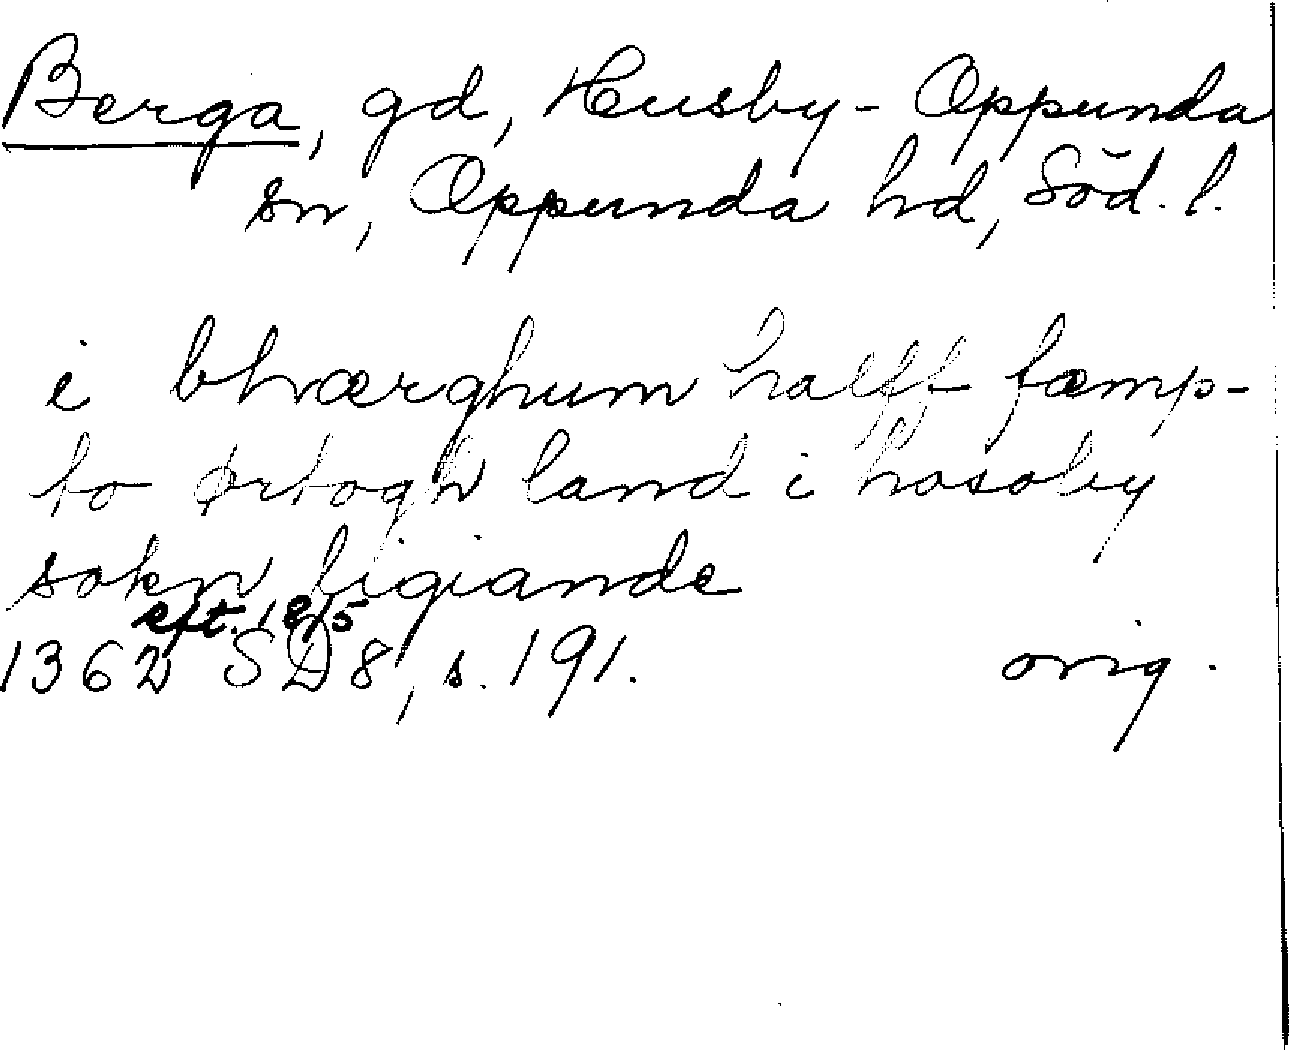 Berga, gd, Husby-Oppunda
sn, Oppunda hd, Söd. l.
i bhværghum halft fæmp-
to ørtogh land i hosaby
sokn ligiande
eft. 18/5
1362 SD8, s. 191. orig.